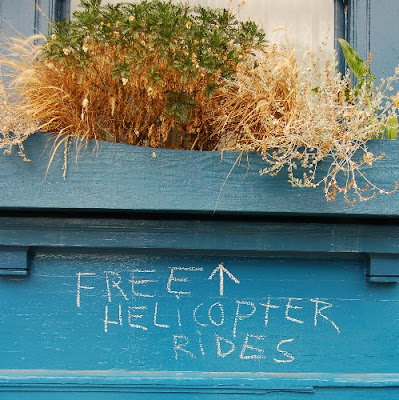 FREE ↑
HELICOPTER
RIDES